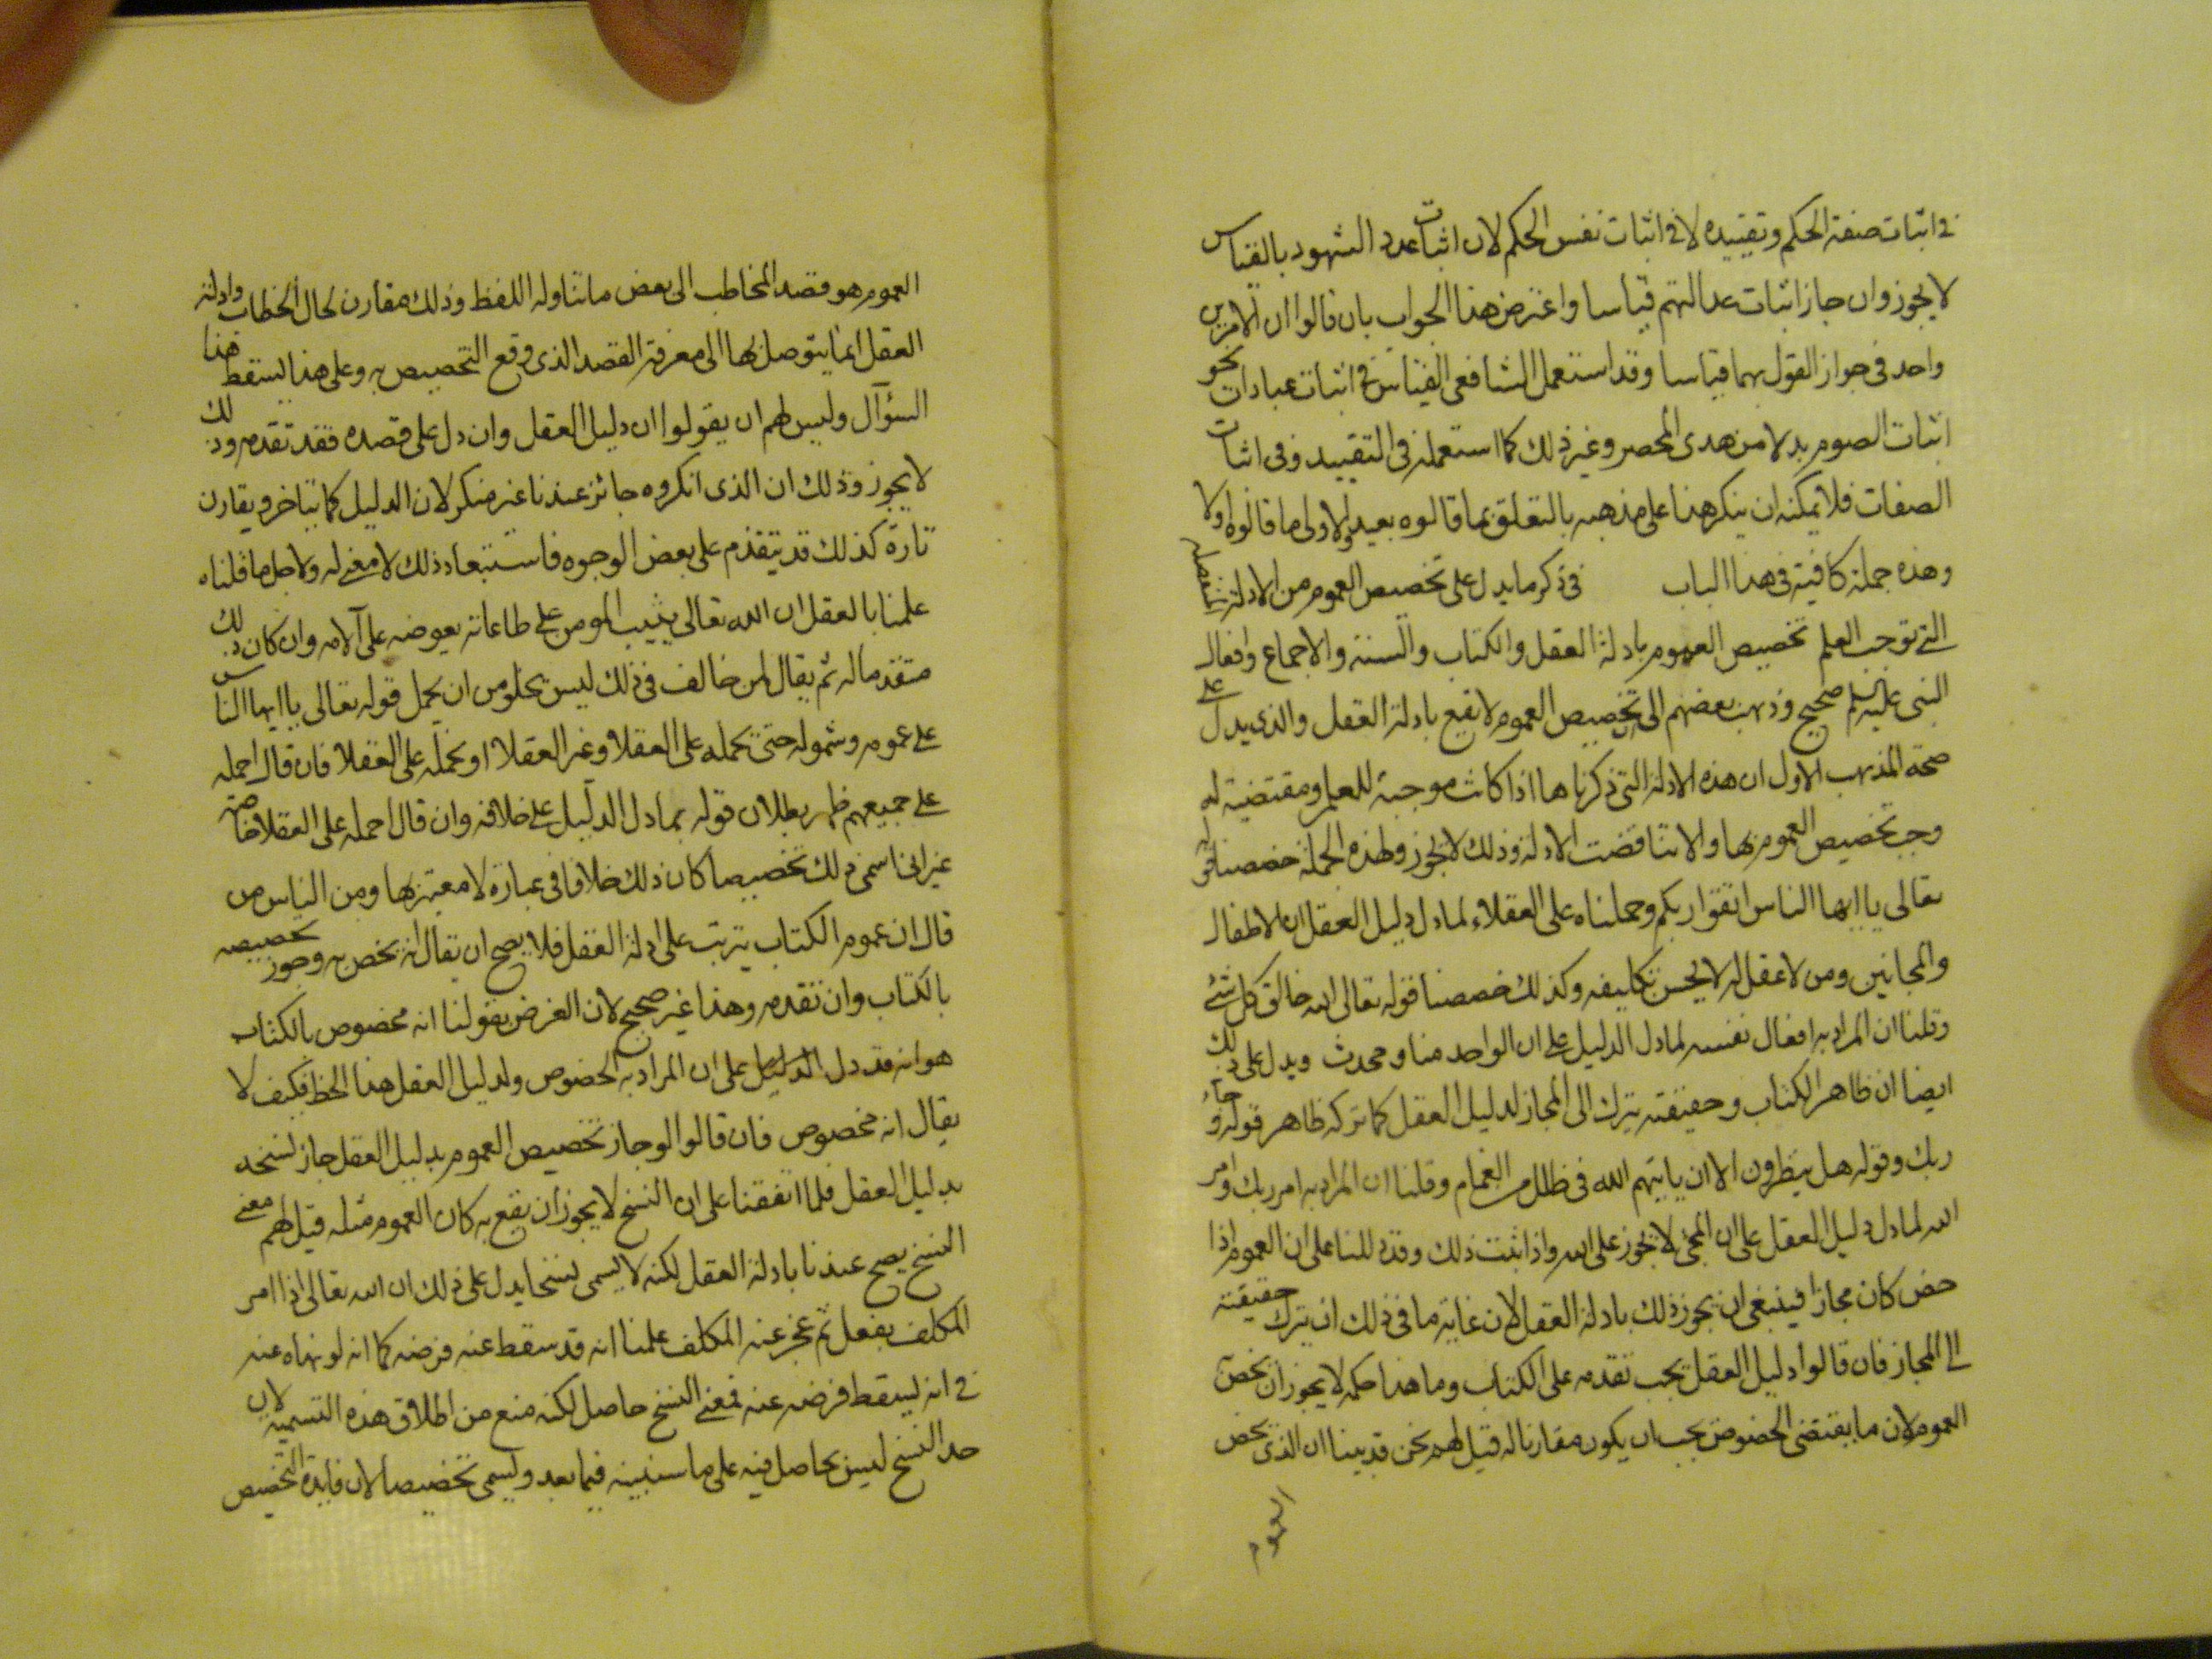 في اثبات صفة الحكم وتقييده لا في اثبات نفس الحكم لان اثبات عدد الشهود بالقياس
لا يجوز وان جاز اثبات عدالتهم قياسا واعترض هذا الجواب بان قالوا ان الامرين
واحد في جواز القول بهما قياسا وقد استعمل الشافعي القياس في اثبات عبادات نحو
اثبات الصوم بدلا من هدى المحصر وغير ذلك كما استعمله في التقييد وفي اثبات
الصفات فلا يمكنه ان ينكر هذا على مذهبه بالتعلق بما قالوه بعيد والاولى ما قالوه اولا
وهذه جملة كافية في هذا الباب في ذكر ما يدل على تخصيص العموم من الادلة المتصلة
التي توجب العلم تخصيص العموم بادلة العقل والكتاب والسنة والاجماع وافعال
النبي عليه السلم صحيح وذهب بعضهم الى تخصيص العموم لا يقع بادلة العقل والذي يدل على
صحة المذهب الاول ان هذه الادلة التي ذكرناها اذا كانت موجبة للعلم ومقتضية له
وجب تخصيص العموم بها والا تناقضت الادلة وذلك لا يجوز ولهذه الجملة خصصنا قوله
تعالى يا ايها الناس اتقوا ربكم وحملناه على العقلاء لما دل دليل العقل ان الاطفال
والمجانين ومن لا عقل له لا يحسن تكليفه وكذلك خصصنا قوله تعالى الله خالق كل شئ
وقلنا ان المراد به افعال نفسه لما دل الدليل على ان الواحد منا ومحدث ويدل على ذلك
ايضا ان ظاهر الكتاب وحقيقته يترك الى المجاز لدليل العقل كما تركه ظاهر قوله وجاء
ربك وقوله هل ينظرون الا ان ياتيهم الله في ظلل من الغمام وقلنا ان المراد به امر ربك وامر
الله لما دل دليل العقل على ان المجئ لا يجوز على الله واذا ثبت ذلك وقد دللنا على ان العموم اذا
خص كان مجازا فينبغي ان يجوز ذلك بادلة العقل لان غاية ما في ذلك ان يترك حقيقته
الى المجاز فان قالوا دليل العقل يجب تقدمه على الكتاب وما هذا حكمه لا يجوز ان يخص
العموم لان ما يقتضى الخصوص يجب ان يكون مقارنا له قيل لهم نحن قد بينا ان الذي يخص
العموم
العموم هو قصد المخاطب الى بعض ما تناوله اللفظ وذلك مقارن لحال الخطاب وادلة
العقل انما يتوصل بها الى معرفة القصد الذي وقع التخصيص به وعلى هذا يسقط هذا
السؤال وليس لهم ان يقولوا ان دليل العقل وان دل على قصده فقد تقدمه وذلك
لا يجوز وذلك ان الذي انكروه جائز عندنا غير منكر لان الدليل كما يتاخر ويقارن
تارة كذلك قد يتقدم على بعض الوجوه فاستبعاد ذلك لا معنى له ولاجل ما قلناه
علمنا بالعقل ان الله تعالى يثيب المومن على طاعاته يعوضه على آلامه وان كان ذلك
متقدما له ثم يقال لمن خالف في ذلك ليس يخلو من ان يحمل قوله تعالى يا ايها الناس
على عمومه وشموله حتى تحمله على العقلا وغير العقلا او يحمله على العقلا فان قال احمله
على جميعهم ظهر بطلان قوله بما دل الدليل على خلافه وان قال احمله على العقلا خاصة
غير اني اسمى ذلك تخصيصا كان ذلك خلافا في عبارة لا معتبر بها ومن الناس من
قال ان عموم الكتاب يترتب على ادلة العقل فلا يصح ان يقال انه يخص به وجوز تخصيصه
بالكتاب وان تقدمه وهذا غير صحيح لان الغرض بقولنا انه مخصوص بالكتاب
هو انه قد دل الدليل على ان المراد به الخصوص ولدليل العقل هذا الحظ فكيف لا
يقال انه مخصوص فان قالوا لو جاز تخصيص العموم بدليل العقل جاز نسخه
بدليل العقل فلما اتفقنا على ان النسخ لا يجوز ان يقع به كان العموم مثله قيل لهم معنى
النسخ يصح عندنا بادلة العقل لكنه لا يسمى نسخا يدل على ذلك ان الله تعالى اذا امر
المكلف بفعل ثم عجز عنه المكلف علمنا انه قد سقط عنه فرضه كما انه لو نهاه عنه
في انه يسقط فرضه عنه فمعنى النسخ حاصل لكنه منع من اطلاق هذه التسمية لان
حد النسخ ليس بحاصل فيه على ما سنبينه فيما بعد ويسمى تخصيصا لان فايدة التخصيص